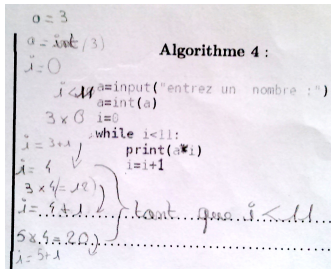 a = 3
a = int(3)
Algorithme 4 :
i = 0
i < 11
a=input("entrez un nombre :")
a=int(a)
3 x 0
i=0
while i<11:
print(a*i)
i=i+1
i = 3+1
i = 4
3 x 4 = 12)
i = 4+1
tant que i < 11
5 x 4 = 20
i = 5+1